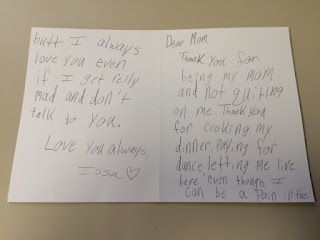 Dear Mom,
Thank You for
being my mom
and not quiting
on me. Thank you
for cooking my
dinner, Paying for
dance, letting me live
here even though I
can be a pain in the
butt I always
love you even
if I get relly
mad and don't
talk to you.
Love you always,
Issa ♡